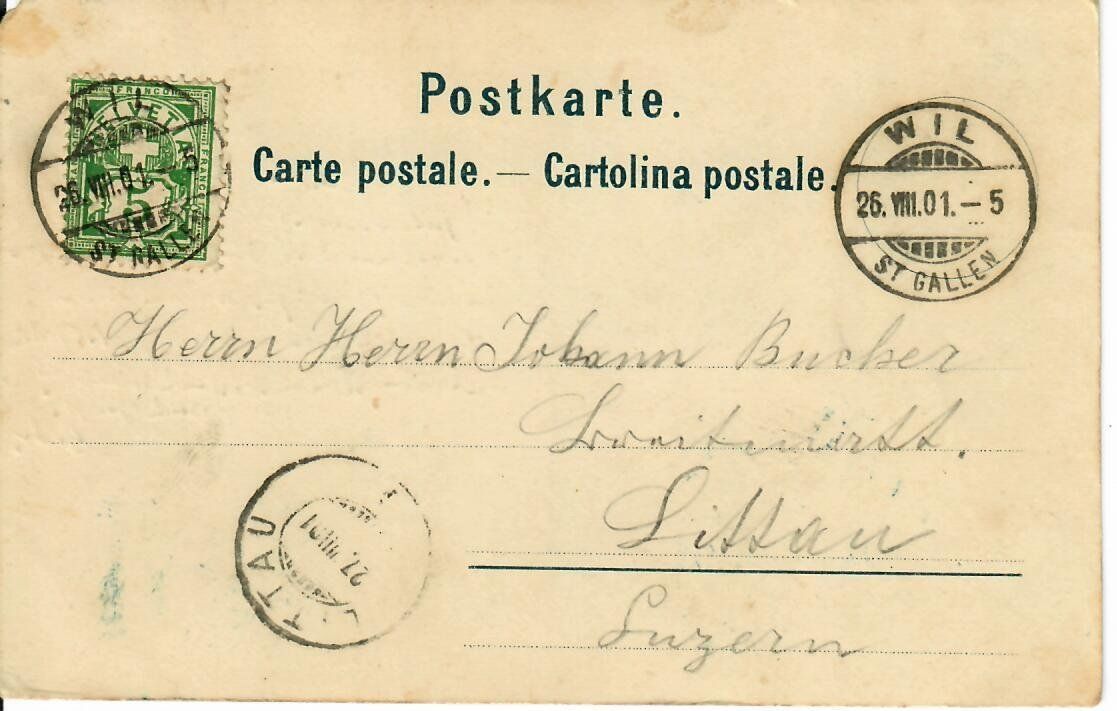 Postkarte.
Carte postale. — Cartolina postale.
FRANCO
HELVETIA
FRANCO
5
WIL
26. VIII. 01. – 5
ST GALLEN
WIL
26. VIII. 01. – 5
ST GALLEN
Herrn Herrn Johann Bucher
Littau
Luzern
TTAU
27. VIII 01